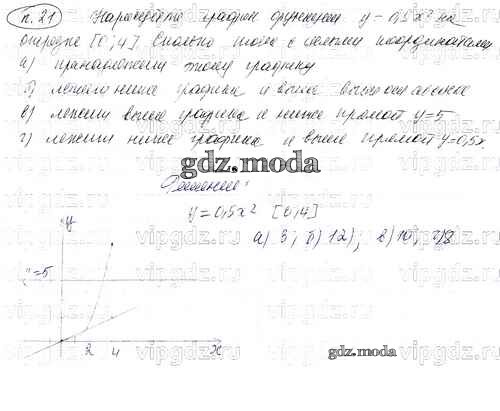 п. 21 Нарисуйте график функции y = 0,5x² на
отрезке [0; 4]. Сколько точек с целыми координатами
а) принадлежит этому графику
б) лежит ниже графика и выше оси абсцисс
в) лежит выше графика и ниже прямой y=5
г) лежит ниже графика и выше прямой y=0,5x
gdz.moda
Решение:
y=0,5x² [0; 4]
а) 3; б) 12; в) 10; г) 8
y
y=5
2 4 x
gdz.moda
vipgdz.ru